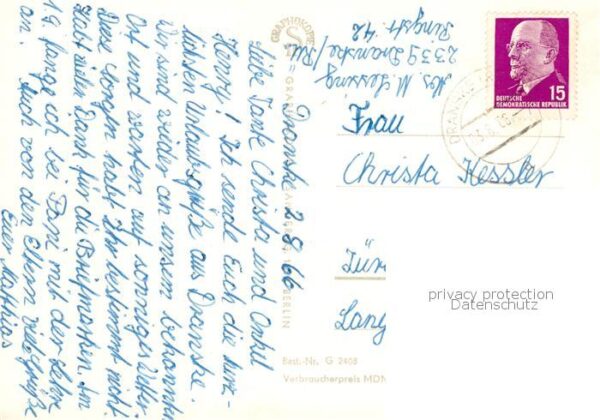 Dranske 2.8.66
Liebe Tante Christa und Onkel
Henry! Ich sende Euch die herz-
lichsten Urlaubsgrüße aus Dranske.
Wir sind wieder an unserm bekannten
Ort und warten auf sonniges Wetter.
Diese Sorgen habt Ihr bestimmt nicht.
Habt vielen Dank für die Briefmarken. Am
19. fange ich bei Fani mit der Lehre
an. Auch von den Eltern viele Grüße
Euer Matthias
Abs. M. Lessing
2339 Dranske/Rü.
Ringstr. 42
DEUTSCHE
DEMOKRATISCHE REPUBLIK
15
Frau
Christa Kessler
Lang
privacy protection
Datenschutz
BERLIN
Best.-Nr. G 2408
Verbraucherpreis MDN